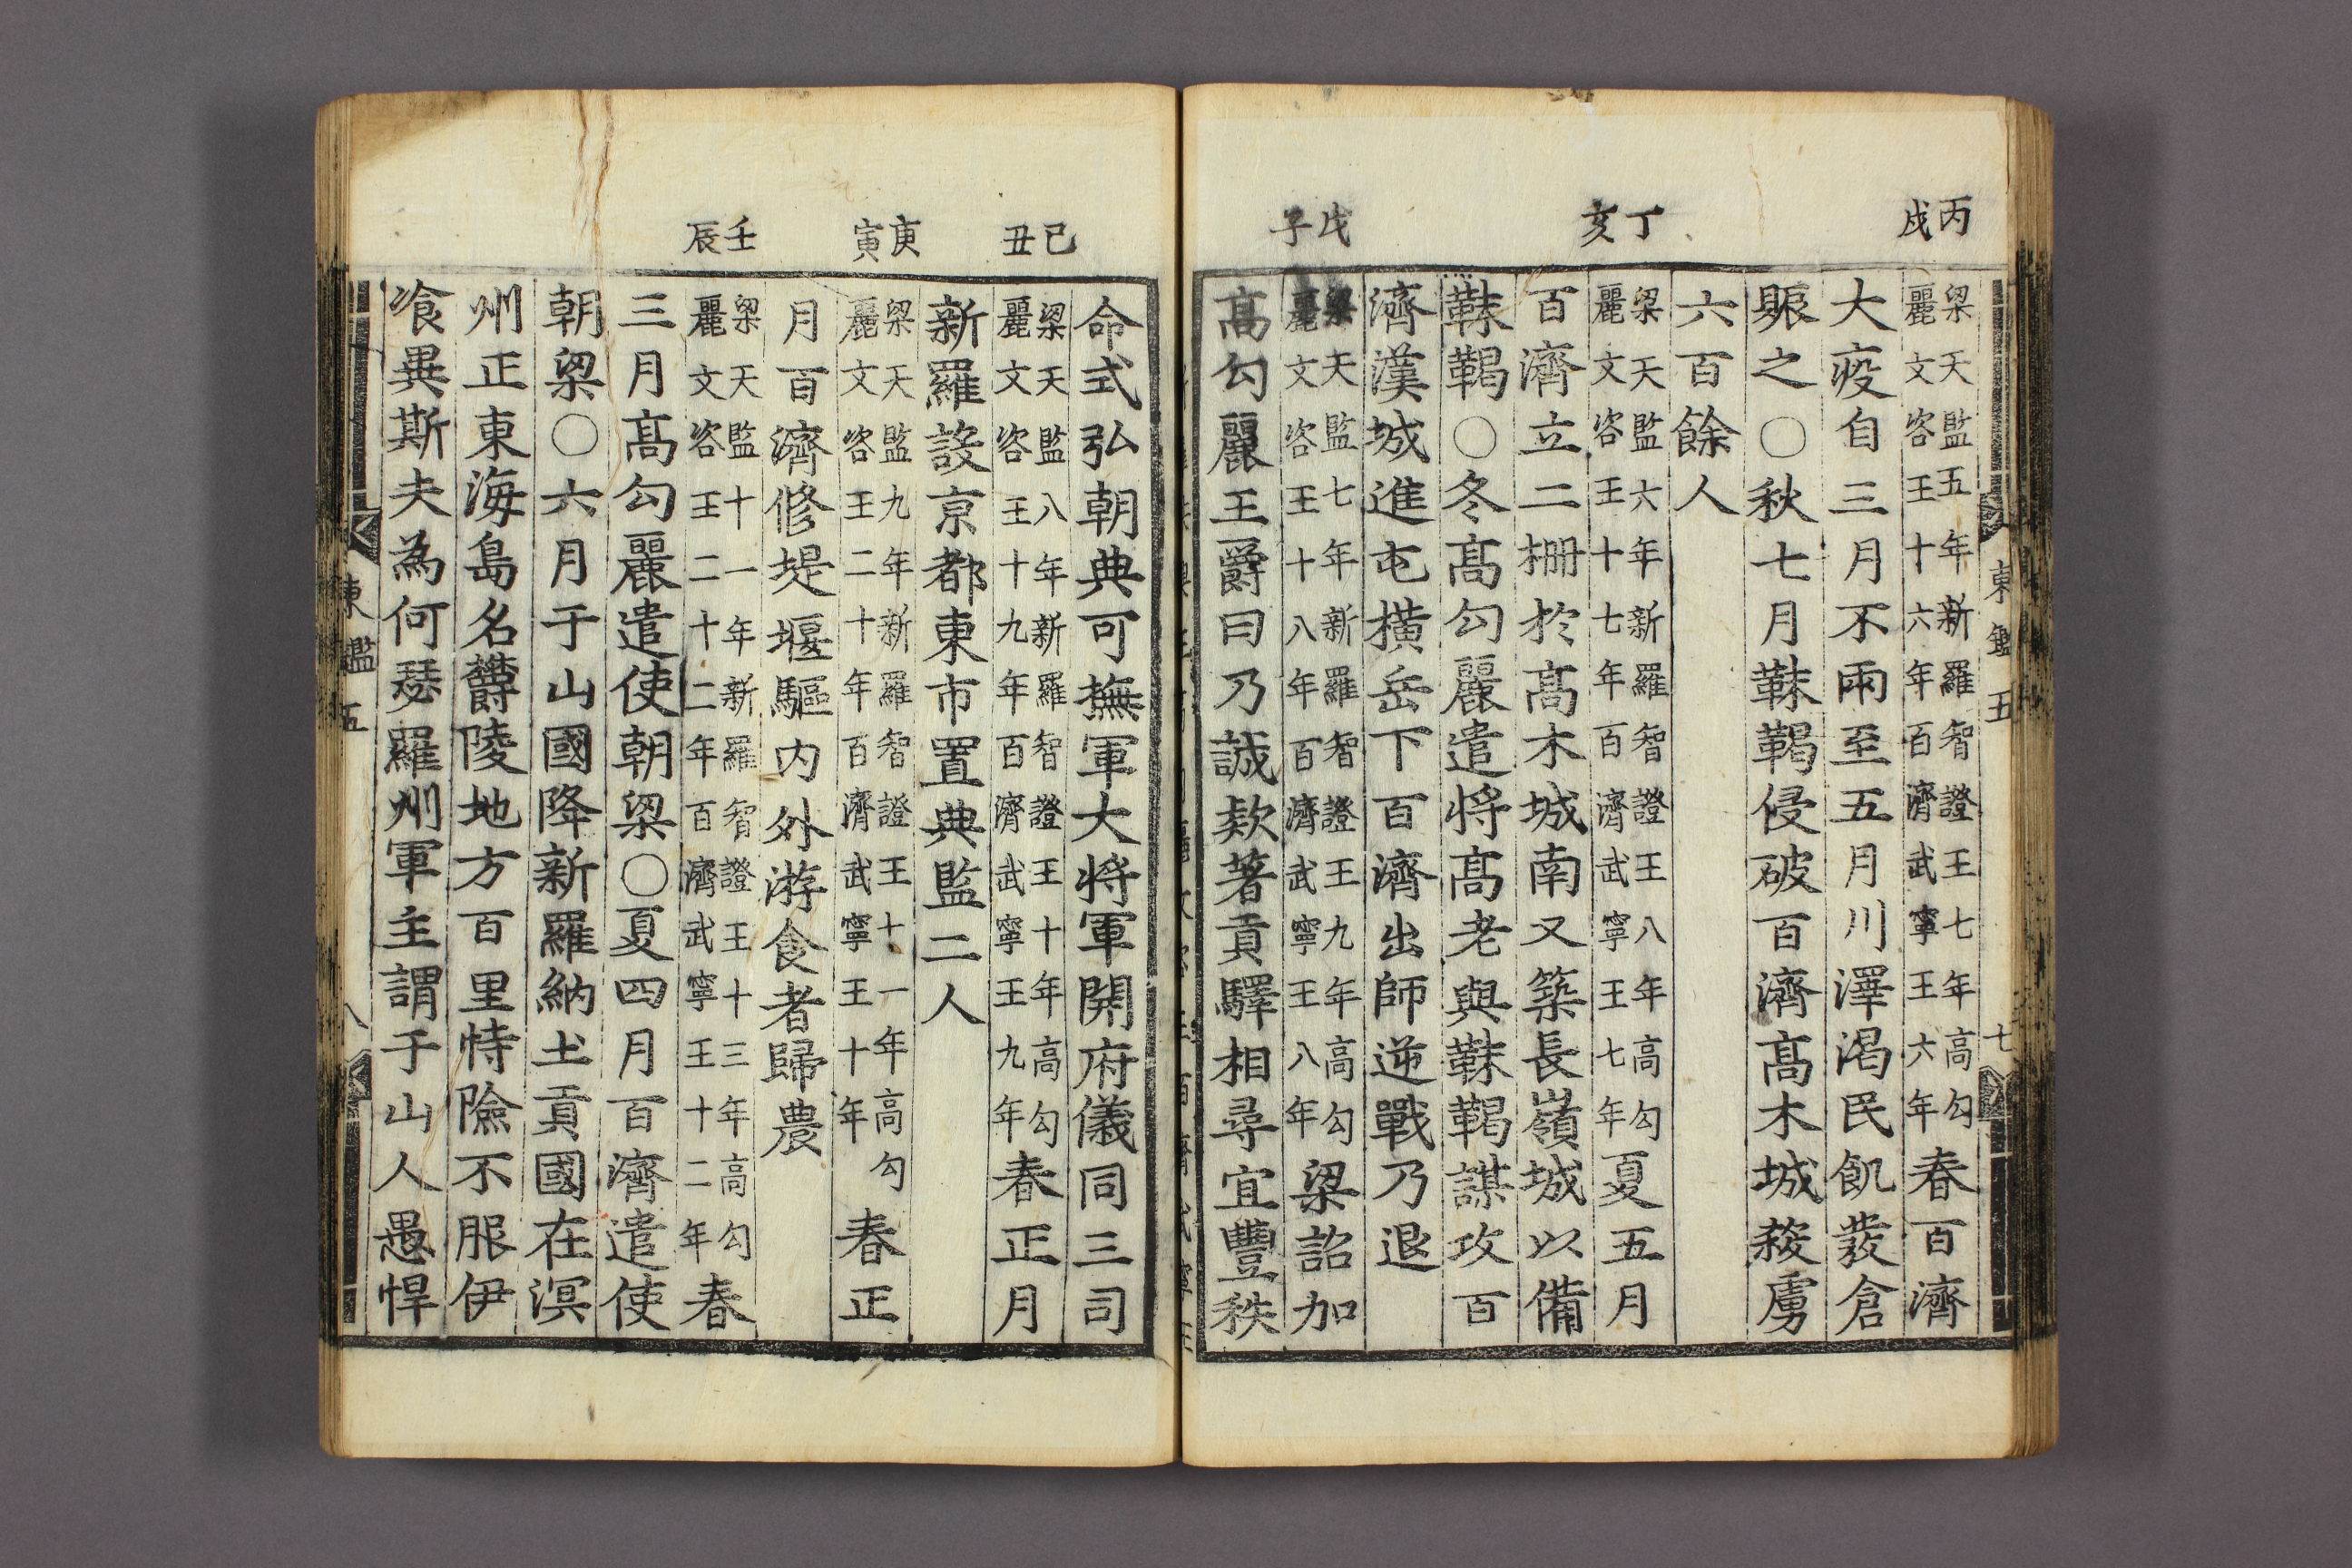 丙戌
丁亥
戊子
梁天監五年新羅智證王七年高勾
麗文咨王十六年百濟武寧王六年春百濟
大疫自三月不雨至五月川澤渴民飢發倉
賑之○秋七月靺鞨侵破百濟高木城殺虜
六百餘人
梁天監六年新羅智證王八年高勾
麗文咨王十七年百濟武寧王七年夏五月
百濟立二柵於高木城南又築長嶺城以備
靺鞨○冬高勾麗遣將高老與靺鞨謀攻百
濟漢城進屯橫岳下百濟出師逆戰乃退
梁天監七年新羅智證王九年高勾
麗文咨王十八年百濟武寧王八年梁詔加
高勾麗王爵曰乃誠欵著貢驛相尋宜豐秩
東鑑五
七
己丑
庚寅
壬辰
命式弘朝典可撫軍大將軍開府儀同三司
梁天監八年新羅智證王十年高勾
麗文咨王十九年百濟武寧王九年春正月
新羅設京都東市置典監二人
梁天監九年新羅智證王十一年高勾
麗文咨王二十年百濟武寧王十年春正
月百濟修堤堰驅內外游食者歸農
梁天監十一年新羅智證王十三年高勾
麗文咨王二十二年百濟武寧王十二年春
三月高勾麗遣使朝梁○夏四月百濟遣使
朝梁○六月于山國降新羅納土貢國在溟
州正東海島名欝陵地方百里恃險不服伊
飡異斯夫為何瑟羅州軍主謂于山人愚悍
東鑑五
八